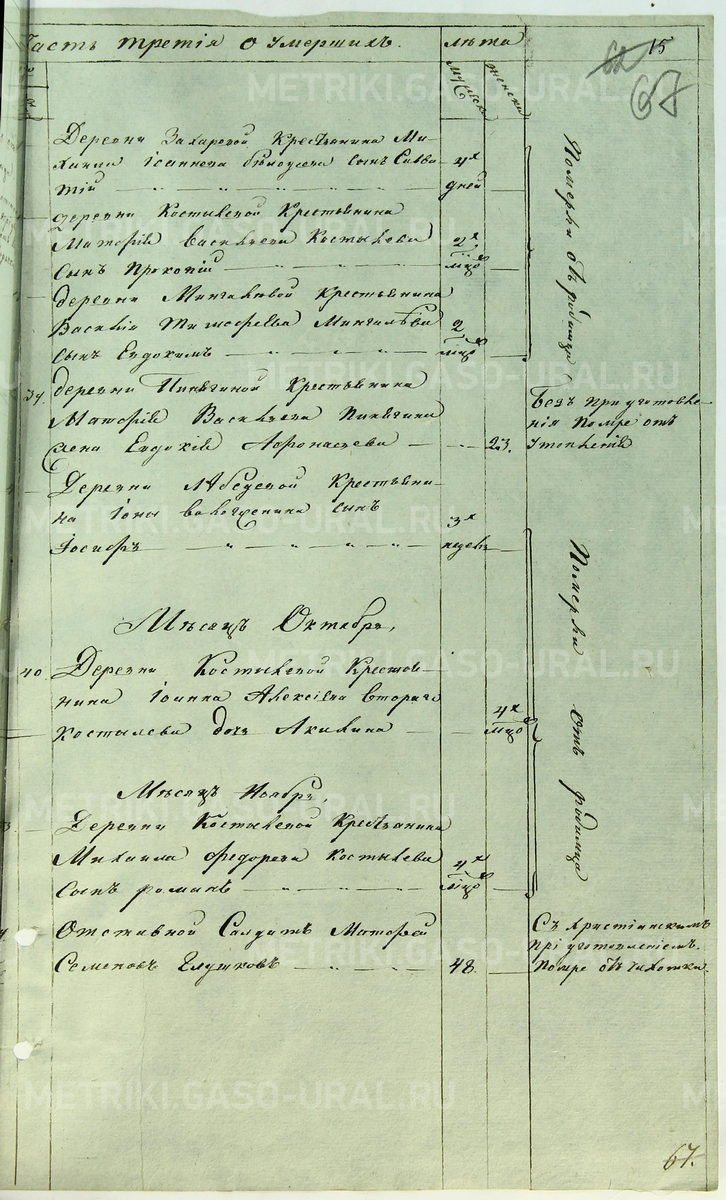 Часть третія о умершихъ.
лѣта
мужеска
женска
15
62
67
Деревни Захаровой Крестьянина Ми-
хаила Іоаннева сынъ
тій
4х
дней
деревни Костылевой Крестьянина
Матфѣя Васильева Костылева
сынъ Прокопій
2х
мцов
деревни Мингалевой Крестьянина
Василія Тимофеева Мингалева
сынъ Евдокимъ
2
мцов
Померли отъ родимца
34. деревни Пинягиной Крестьянина
Матфѣя Васильева Пинягина
жена Евдокія Афонасьева
23.
безъ приуготовле-
нія помре отъ
утопленія
Деревни Лебедевой Крестьяни-
на Іоны сынъ
Іосифъ
3х
недель
Мѣсяцъ Октябрь,
40 Деревни Костылевой Крестья-
нина Іоанна Алексіева Втораго
Костылева дочь Акилина
4х
мцов
Мѣсяцъ Ноябрь,
Деревни Костылевой Крестьянина
Михаила Федорова Костылева
Сынъ романъ
4х
мцов
Померли отъ родимца
Отставной Салдатъ Матфей
Семеновъ Глушковъ
48.
Съ Христіанскимъ
пріуготовленіемъ.
помре отъ чахотки.
67.
METRIKI.GASO-URAL.RU